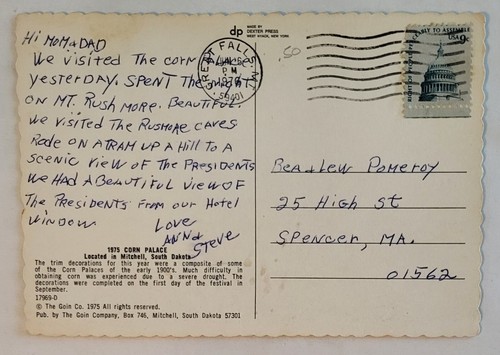 Hi MOM & DAD
We visited the corn palace
yesterday. SPENT the night
ON MT. RUSHMORE. BEAUTIFUL.
We visited The Rushmore caves
Rode on a tram up a Hill to a
scenic view of The Presidents
We had a beautiful view of
The Presidents from our Hotel
window
Love
ANN &
STEVE
1975 CORN PALACE
Located in Mitchell, South Dakota
The trim decorations for this year were a composite of some
of the Corn Palaces of the early 1900's. Much difficulty in
obtaining corn was experienced due to a severe drought. The
decorations were completed on the first day of the festival in
September.
17969-D
© The Goin Co. 1975 All rights reserved.
Pub. by The Goin Company, Box 746, Mitchell, South Dakota 57301
dp
MADE BY
DEXTER PRESS
WEST NYACK, NEW YORK
50
GREAT FALLS, MT
PM
1978
59401
USA 9c
Bea & Lew Pomeroy
25 High St
Spencer, MA.
01562